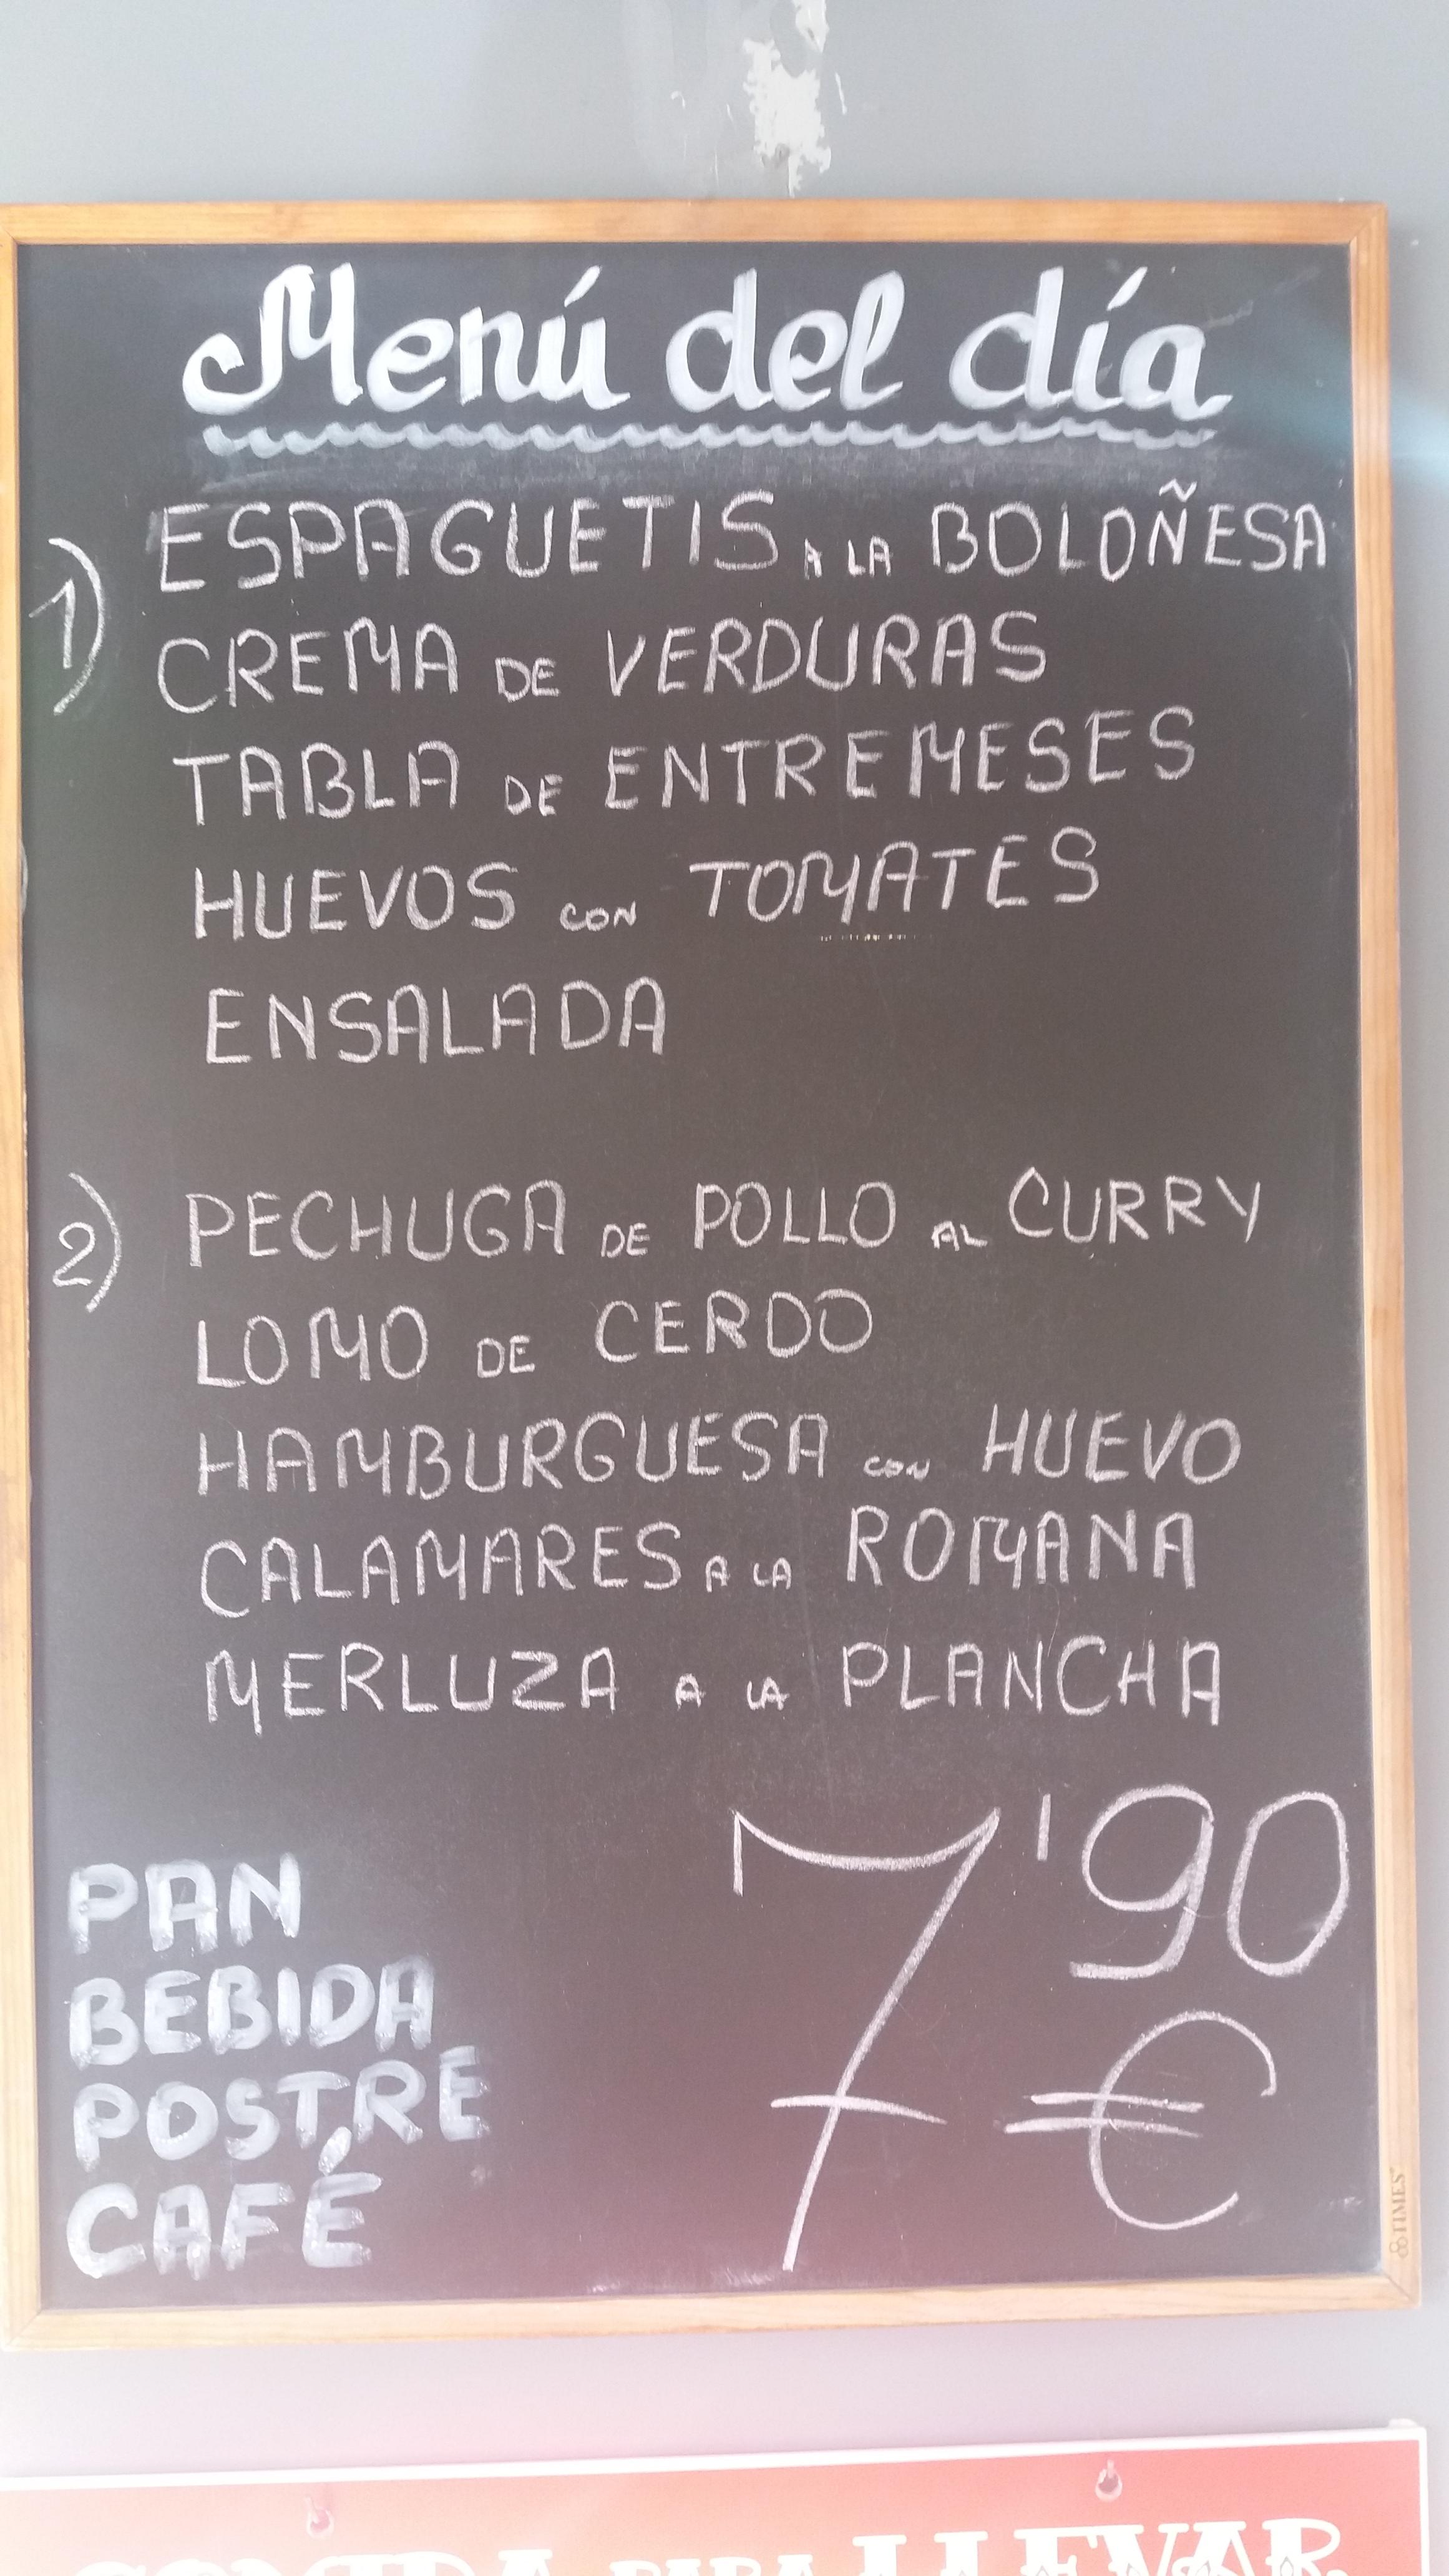 Menú del día
1) ESPAGUETIS A LA BOLOÑESA
CREMA DE VERDURAS
TABLA DE ENTREMESES
HUEVOS CON TOMATES
ENSALADA
2) PECHUGA DE POLLO AL CURRY
LOMO DE CERDO
HAMBURGUESA CON HUEVO
CALAMARES A LA ROMANA
MERLUZA A LA PLANCHA
7'90
€
PAN
BEBIDA
POSTRE
CAFÉ
TIMES
COMIDA PARA LLEVAR